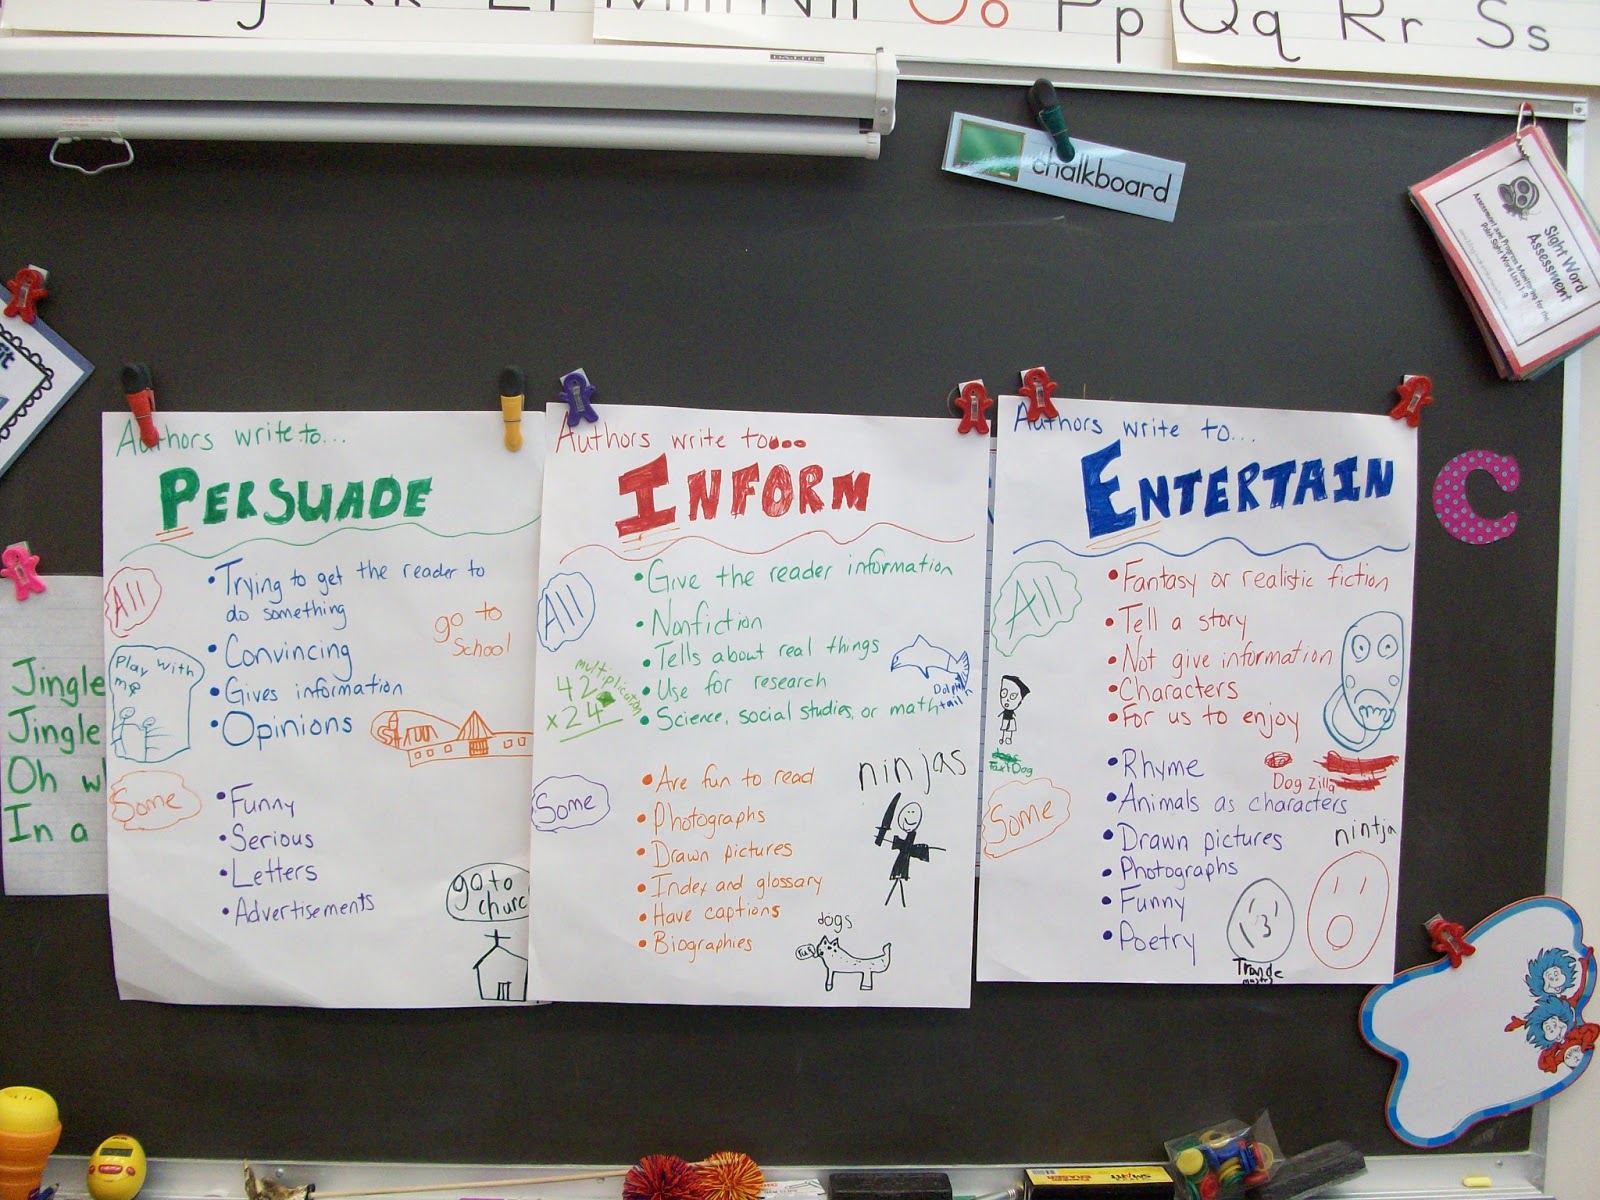 Kk
Nn
Oo
Pp
Qq
Rr
Ss
DA-LITE
chalkboard
Sight Word
Assessment
Assessment and Progress Monitoring for the
Dolch Sight Word Lists 1-3
C
Jingle
Jingle
Oh
In a
Authors write to...
PERSUADE
All
• Trying to get the reader to
do something
• Convincing
• Gives information
• Opinions
go to
School
Play with
me
Some
• Funny
• Serious
• Letters
• Advertisements
go to
Authors write to...
INFORM
All
• Give the reader information
• Nonfiction
• Tells about real things
• Use for research
• Science, social studies, or math
multiplication
42
x24
Dolphin
tail
Some
• Are fun to read
• Photographs
• Drawn pictures
• Index and glossary
• Have captions
• Biographies
ninjas
dogs
Authors write to...
ENTERTAIN
All
• Fantasy or realistic fiction
• Tell a story
• Not give information
• Characters
• For us to enjoy
Dog
Dog Zilla
Some
• Rhyme
• Animals as characters
• Drawn pictures
• Photographs
• Funny
• Poetry
nintja